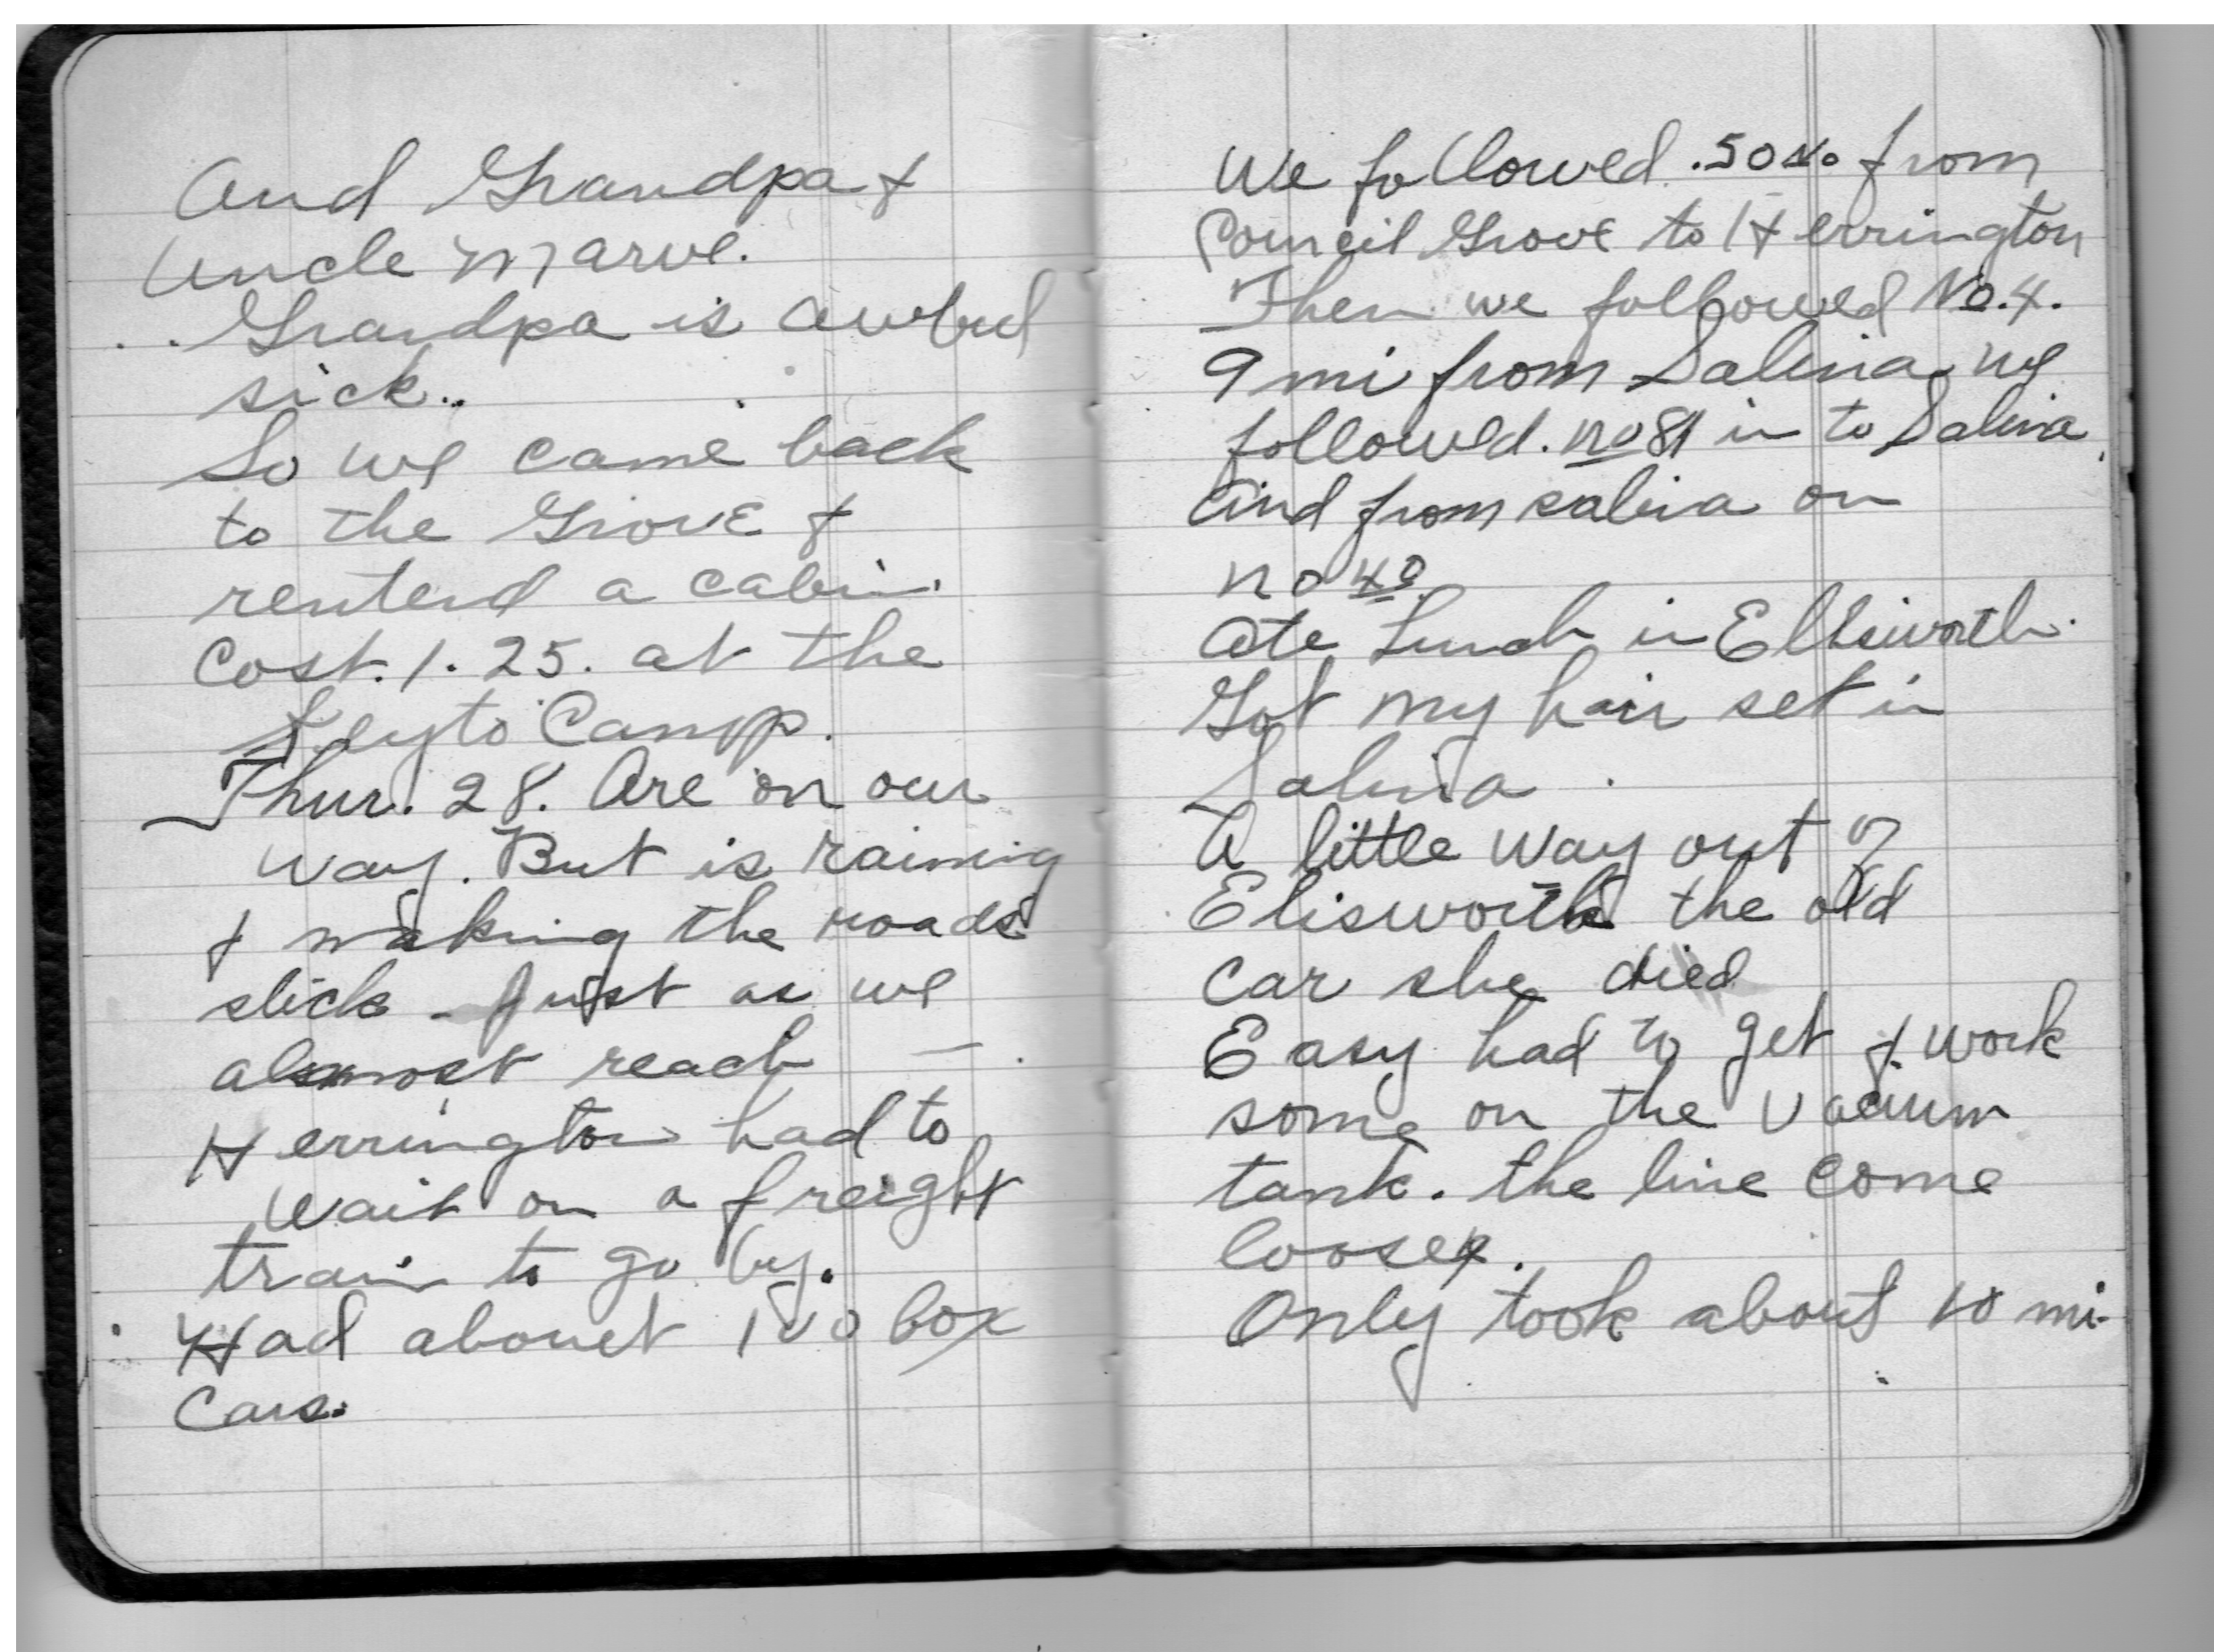 And Grandpa &
Uncle Marve.
Grandpa is awful
sick..
So we came back
to the Grove &
rentend a cabin.
Cost. 1.25. at the
Camp.
Thur. 28. Are on our
way. But is raining
& making the roads
slick - Just as we
almost reach -.
Herrington had to
wait on a freight
train to go by.
Had about 100 box
Cars.
We followed .50 No. from
Council Grove to Herrington
Then we followed No. 4.
9 mi from Salina we
followed. no 81 in to Salina,
and from salina on
no 40
Ate Lunch in Ellsworth.
Got my hair set in
Salina.
A little way out of
Elisworth the old
car she died
Easy had to get & work
some on the Vacum
tank. the line come
loose.
Only took about 10 mi.